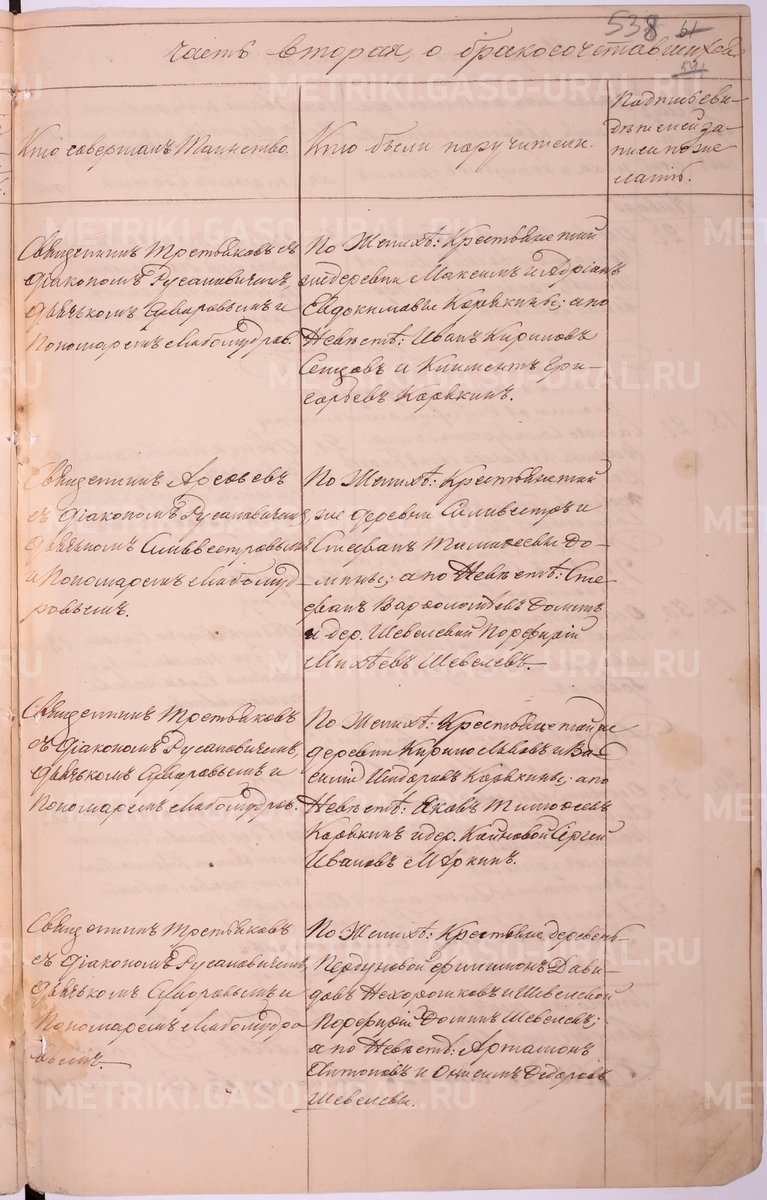 538
61
часть вторая, о бракосочетавшихся
Кто совершалъ Таинство.
Кто были поручители.
Подпись сви-
дѣтелей за-
писи по же-
ланію.
Священникъ Третьяковъ съ
діакономъ Русановичемъ,
дьячкомъ и
Пономаремъ Любомудров.
По Женихѣ: Крестьяне той
же деревни Максимъ и Адріанъ
Евдокимовы Корякины; а по
Невѣстѣ: Иванъ Кириловъ
и Климентъ Ели-
саровъ Корякинъ.
Священникъ
съ діакономъ Русановичемъ,
дьячкомъ Силвестровымъ
и Пономаремъ Любомуд-
ровымъ.
По Женихѣ: Крестьяне той
же деревни Селиверстъ и
Стефанъ Тимофеевы До-
мнины; а по Невѣстѣ: Сте-
фанъ Варфоломѣевъ Домнинъ
и дер. Шевелевой Порфирій
Михѣевъ Шевелевъ.
Священникъ Третьяковъ
съ діакономъ Русановичемъ,
дьячкомъ и
Пономаремъ Любомудров.
По Женихѣ: Крестьяне той же
деревни Кирило и Ва-
силій Корякины; а по
Невѣстѣ: Яковъ Тимофеевъ
Корякинъ и дер. Сергій
Ивановъ
Священникъ Третьяковъ
съ діакономъ Русановичемъ,
дьячкомъ и
Пономаремъ Любомудро-
вымъ.
По Женихѣ: Крестьяне деревень
Филимонъ Дави-
довъ Нехорошковъ и Шевелевой
Порфирій Шевелевъ;
а по Невѣстѣ: Артамонъ
Антоновъ и Ѳедоровъ
Шевелевы.
METRIKI.GASO-URAL.RU